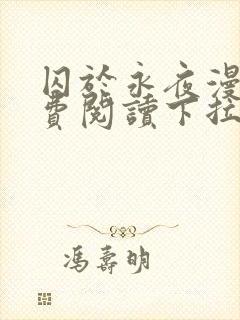 囚於永夜漫
費閱讀下拉
馮壽明